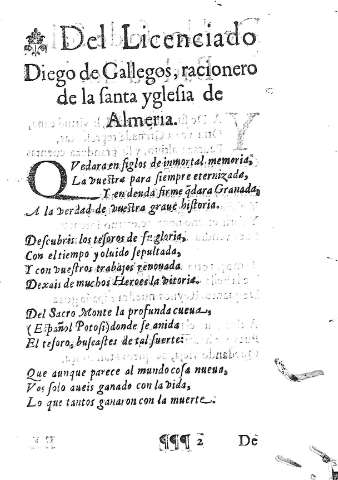 Del Licenciado
Diego de Gallegos, racionero
de la santa yglesia de
Almeria.
QVedara en siglos de inmortal memoria,
La vuestra para siempre eternizada,
Y en deuda firme q̃dara Granada,
A la verdad de vuestra graue historia.
Descubris los tesoros de su gloria,
Con el tiempo y oluido sepultada,
Y con vuestros trabajos renouada
Dexais de muchos Heroes la vitoria.
Del Sacro Monte la profunda cueua,
(Español Potosi) donde se anida
El tesoro, buscastes de tal suerte:
Que aunque parece al mundo cosa nueua,
Vos solo aueis ganado con la vida,
Lo que tantos ganaron con la muerte.
¶¶¶ 2 De